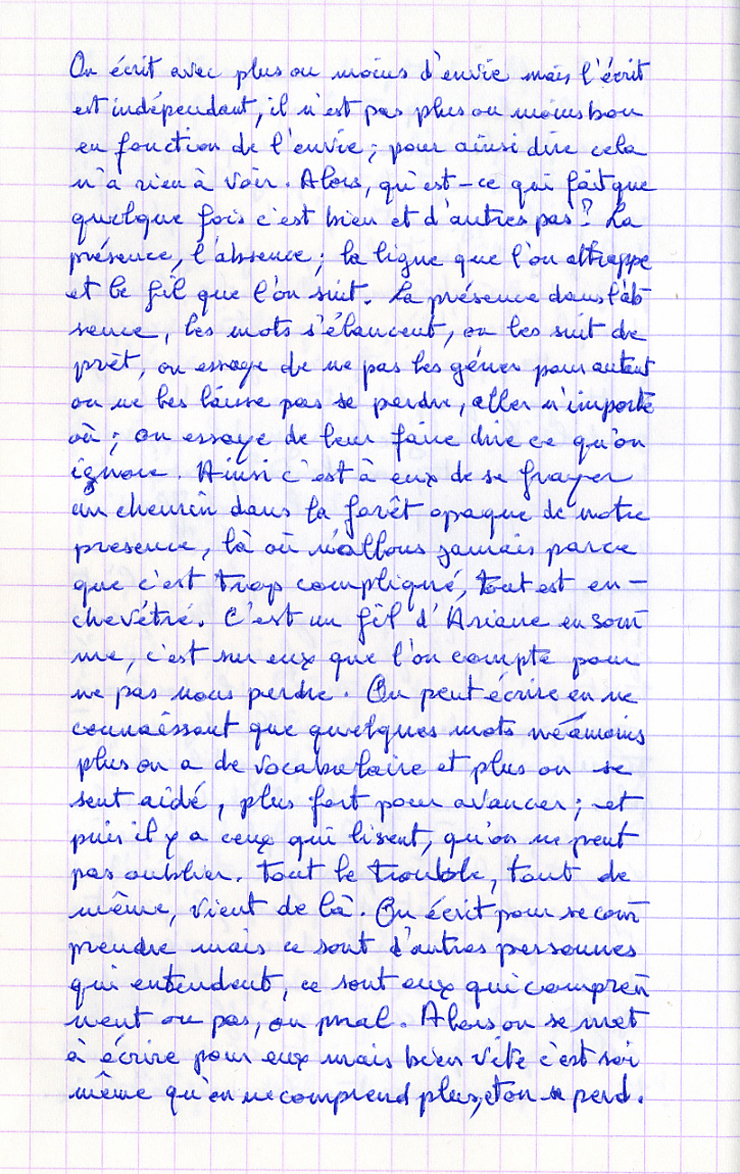 On écrit avec plus ou moins d'envie mais l'écrit
est indépendant, il n'est pas plus ou moins bon
en fonction de l'envie; pour ainsi dire cela
n'a rien à voir. Alors, qu'est-ce qui fait que
quelque fois c'est bien et d'autres pas? La
présence, l'absence; la ligne que l'on attrappe
et le fil que l'on suit. La présence dans l'ab
sence, les mots s'élancent, on les suit de
prêt, on essaye de ne pas les gêner pour autant
on ne les laisse pas se perdre, aller n'importe
où; on essaye de leur faire dire ce qu'on
ignore. Ainsi c'est à eux de se frayer
un chemin dans la forêt opaque de notre
presence, là où n'allons jamais parce
que c'est trop compliqué, tout est en-
chevétré. C'est un fil d'Ariane en som
me, c'est sur eux que l'on compte pour
ne pas nous perdre. On peut écrire en ne
connaissant que quelques mots néamoins
plus on a de vocabulaire et plus on se
sent aidé, plus fort pour avancer; et
puis il y a ceux qui lisent, qu'on ne peut
pas oublier. Tout le trouble, tout de
même, vient de là. On écrit pour se com
prendre mais ce sont d'autres personnes
qui entendent, ce sont eux qui compren
nent ou pas, ou mal. Alors on se met
à écrire pour eux mais bien vite c'est soi
même qu'on ne comprend plus, et on se perd.